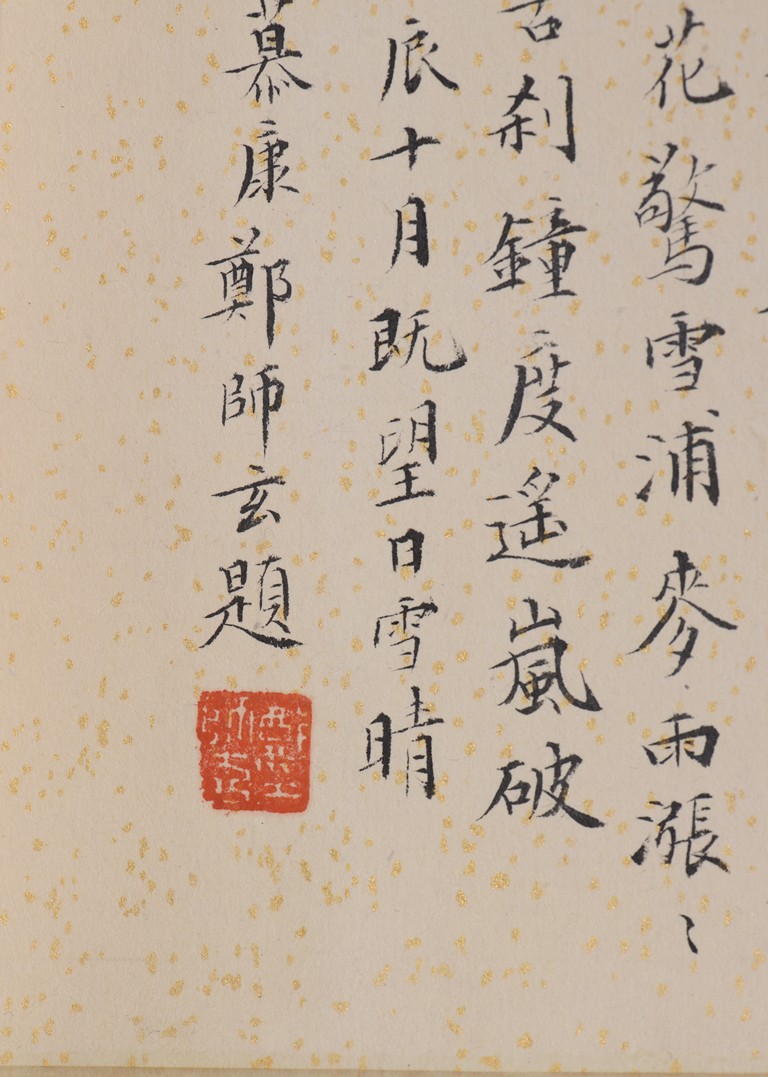 花驚雪浦麥雨漲〻
刹鐘度遥嵐破
辰十月既望日雪晴
慕康鄭師玄題